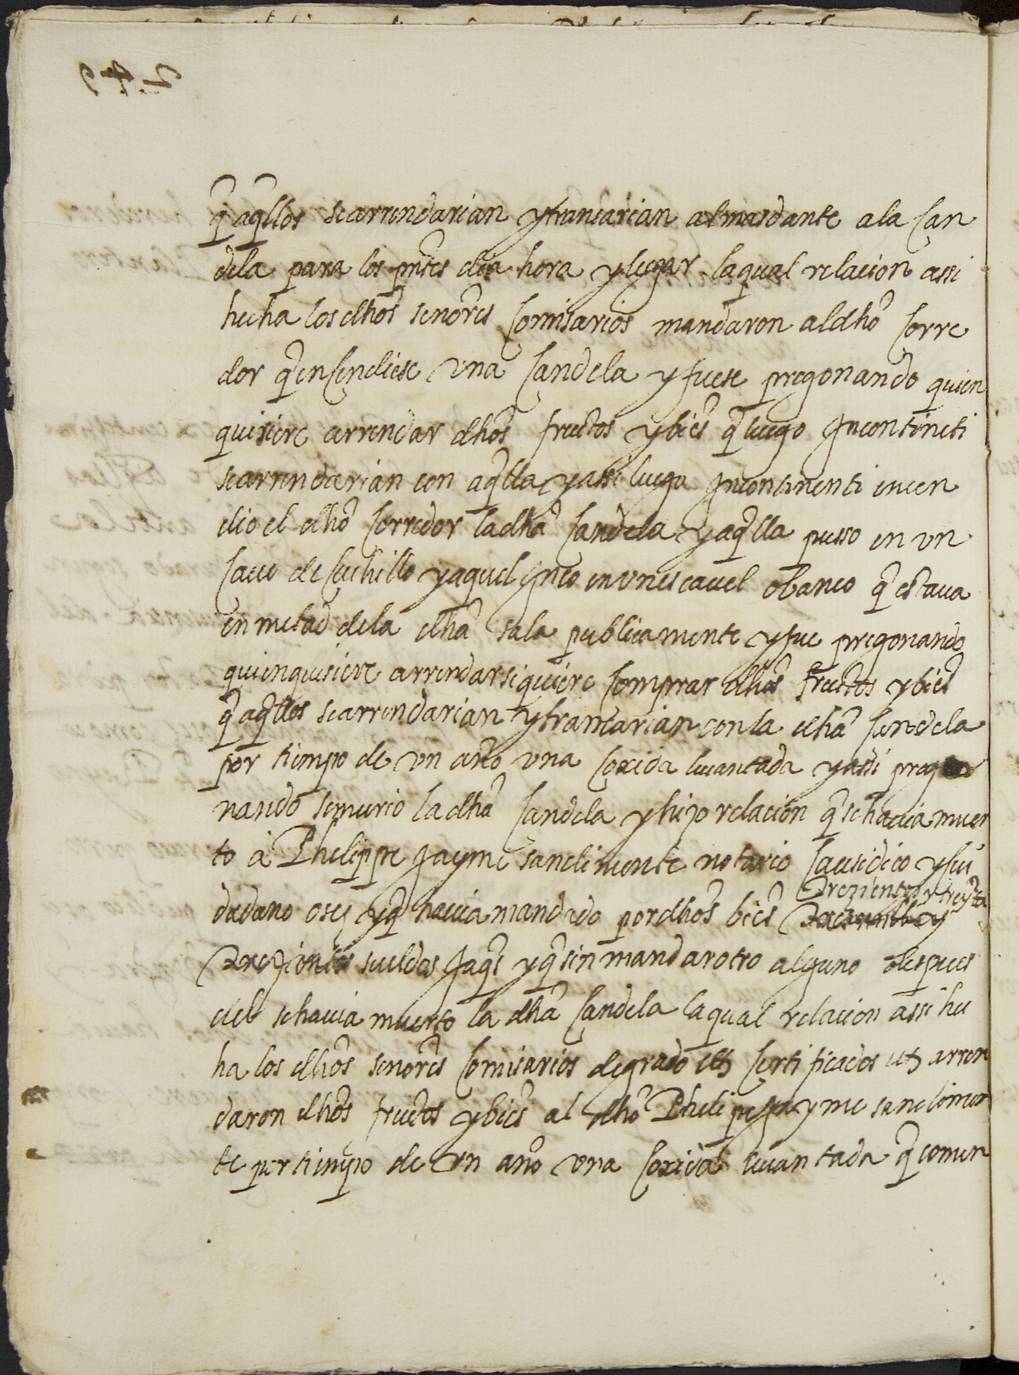 q̃ aq̃llos se arrendarian y trançarian al mas dante a la can
dela para los pñtes dia hora y lugar la qual relacion assi
hecha los dhos señores Comisarios mandaron al dho Corre
dor q̃ encendiese una candela y fuese pregonando quien
quisiere arrendar dhos fructos y bies q̃ luego Incontineti
se arrendarian con aq̃lla y assi luego Incontinenti encen
dio el dho Corredor la dha candela y aq̃lla pusso en un
cauo de cuchillo y aquel hinco en un escauel o banco q̃ estaua
en metad de la dha sala publicamente y fue pregonando
quien quisiere arrendar siquiere comprar dhos fructos y bies
q̃ aq̃llos se arrendarian y trançarian con la dha candela
por tiempo de un año una coxida leuantada y assi prego
nando se murio la dha candela y hizo relacion q̃ se hauia muer
to a Phelippe Jayme Sanclimente notario Causidico y ciu
Trezientos y treynta
dadano osc̃ y q̃ hauia mandado por dhos bies
Trezientos sueldos Jaq̃s y q̃ sin mandar otro alguno despues
del se hauia muerto la dha candela la qual relacion assi he
ha los dhos señores Comisarios de grado etz certificados etz arren
daron dhos fructos y bies al dho Phelipe Jayme sanclimen
te por tiempo de un año una coxida leuantada q̃ comen